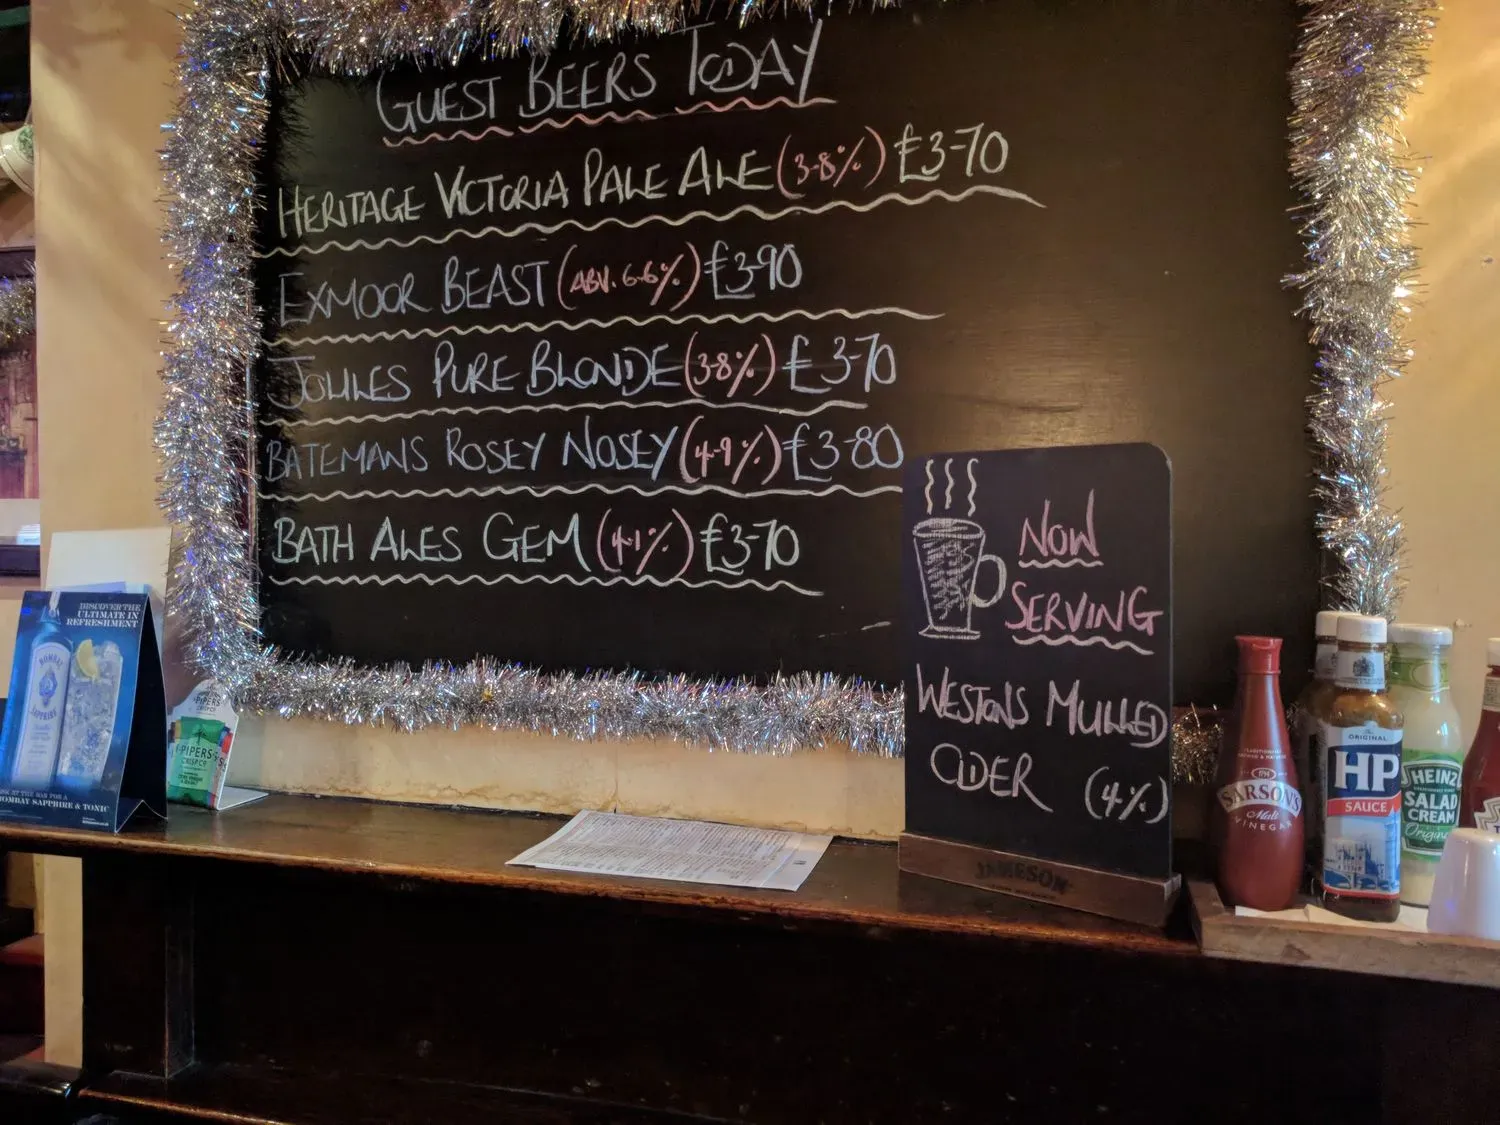 GUEST BEERS TODAY
HERITAGE VICTORIA PALE ALE (3-8%) £3-70
EXMOOR BEAST (ABV. 6-6%) £3-90
JOULES PURE BLONDE (3-8%) £3-70
BATEMANS ROSEY NOSEY (4-9%) £3-80
BATH ALES GEM (4-1%) £3-70
NOW
SERVING
WESTONS MULLED
CIDER (4%)
JAMESON
DISCOVER THE
ULTIMATE IN
REFRESHMENT
BOMBAY
SAPPHIRE
BOMBAY SAPPHIRE & TONIC
PIPERS
CRISP CO
PIPERS
CRISP CO
SARSON'S
Malt
VINEGAR
ORIGINAL
HP
SAUCE
HEINZ
SALAD
CREAM
Original